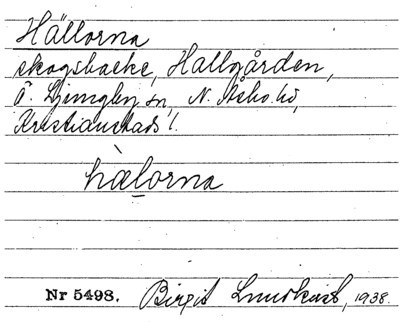 Hällorna
skogsbacke, Hallgården,
Ö. Ljungby sn, N. Åsbo hd,
Kristianstads l.
hàlorna
Nr 5498. Birgit Lundkvist, 1938.